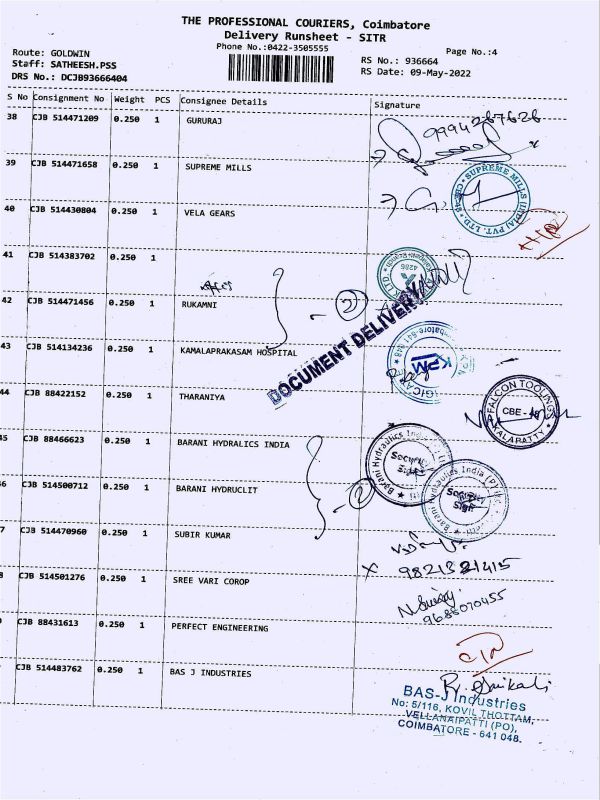 THE PROFESSIONAL COURIERS, Coimbatore
Delivery Runsheet - SITR
Phone No.:0422-3505555
Page No.:4
Route: GOLDWIN
Staff: SATHEESH.PSS
DRS No.: DCJB93666404
RS No.: 936664
RS Date: 09-May-2022
S No Consignment No Weight PCS Consignee Details Signature
38 CJB 514471209 0.250 1 GURURAJ
9994267626
39 CJB 514471658 0.250 1 SUPREME MILLS
SUPREME MILLS (INDIA) PVT. LTD
40 CJB 514430804 0.250 1 VELA GEARS
41 CJB 514383702 0.250 1
4286
42 CJB 514471456 0.250 1 RUKAMNI
2
DOCUMENT DELIVERY
43 CJB 514134236 0.250 1 KAMALAPRAKASAM HOSPITAL
KPM
44 CJB 88422152 0.250 1 THARANIYA
FALCON TOOLING
CBE -
KALAPATTY
45 CJB 88466623 0.250 1 BARANI HYDRALICS INDIA
Barani Hydraulics India
Security
Sign
46 CJB 514500712 0.250 1 BARANI HYDRUCLIT
2
Barani Hydraulics India (P)
Security
Sign
7 CJB 514470960 0.250 1 SUBIR KUMAR
9821821415
8 CJB 514501276 0.250 1 SREE VARI COROP
9688070455
CJB 88431613 0.250 1 PERFECT ENGINEERING
CJB 514483762 0.250 1 BAS J INDUSTRIES
BAS-J Industries
No: 5/116, KOVIL THOTTAM,
VELLANAIPATTI (PO),
COIMBATORE - 641 048.